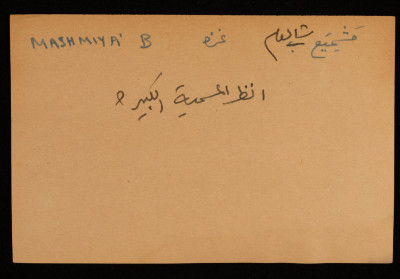 MASHMIYA' B غزه مشيع
انظر المسمية الكبيرة